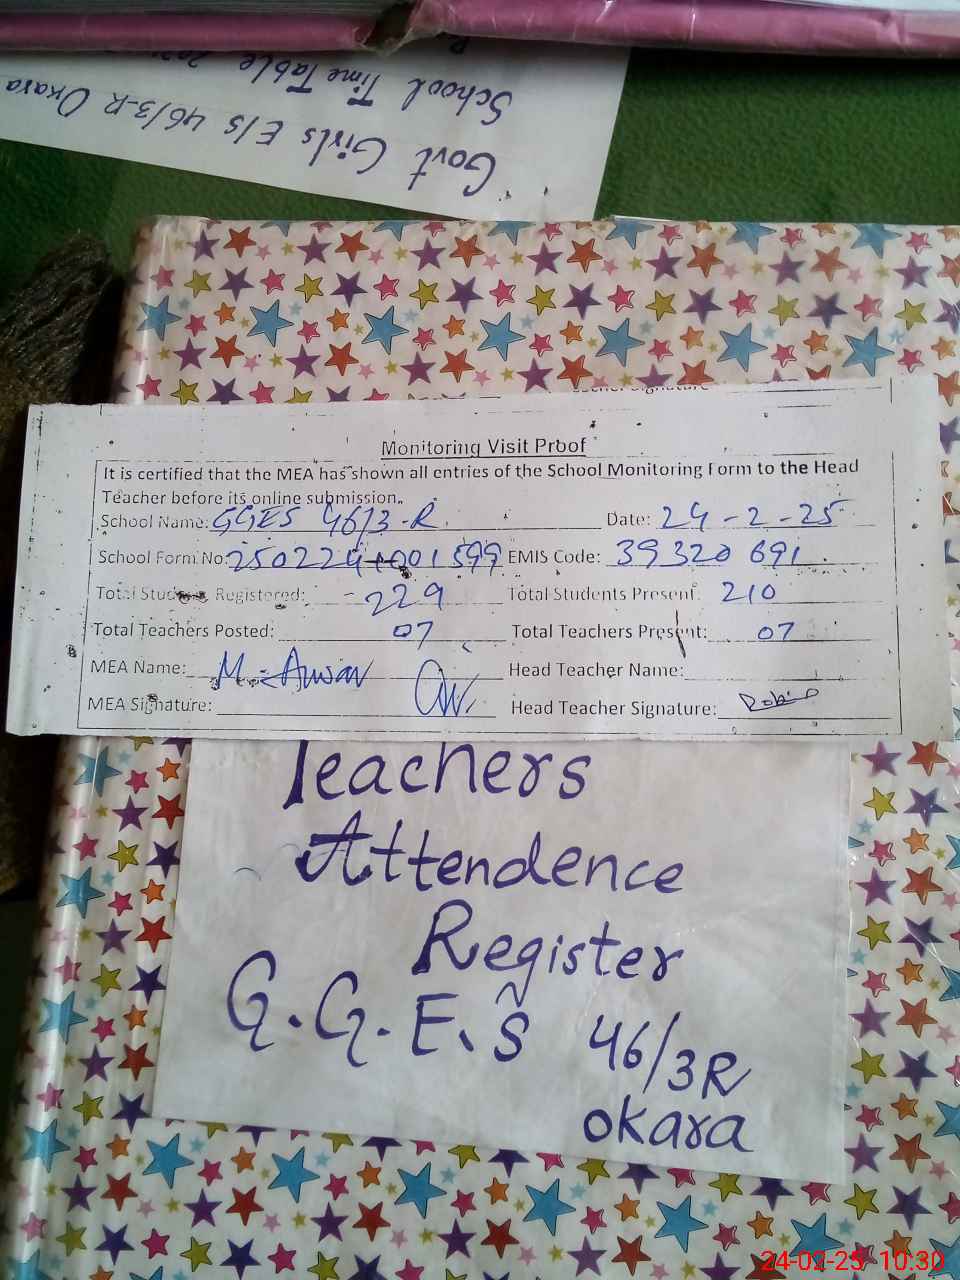 Govt Girls E/S 46/3-R Okara
School Time Table
Monitoring Visit Proof
It is certified that the MEA has shown all entries of the School Monitoring Form to the Head
Teacher before its online submission.
School Name: GGES 46/3-R Date: 24-2-25
School Form No: EMIS Code: 39320691
Total Registered: 229 Total Students Present: 210
Total Teachers Posted: 07 Total Teachers Present: 07
MEA Name: M. Anwar Head Teacher Name:
MEA Signature: Head Teacher Signature:
Teachers
Attendence
Register
G.G.E.S 46/3R
Okara
24-02-25 10:30